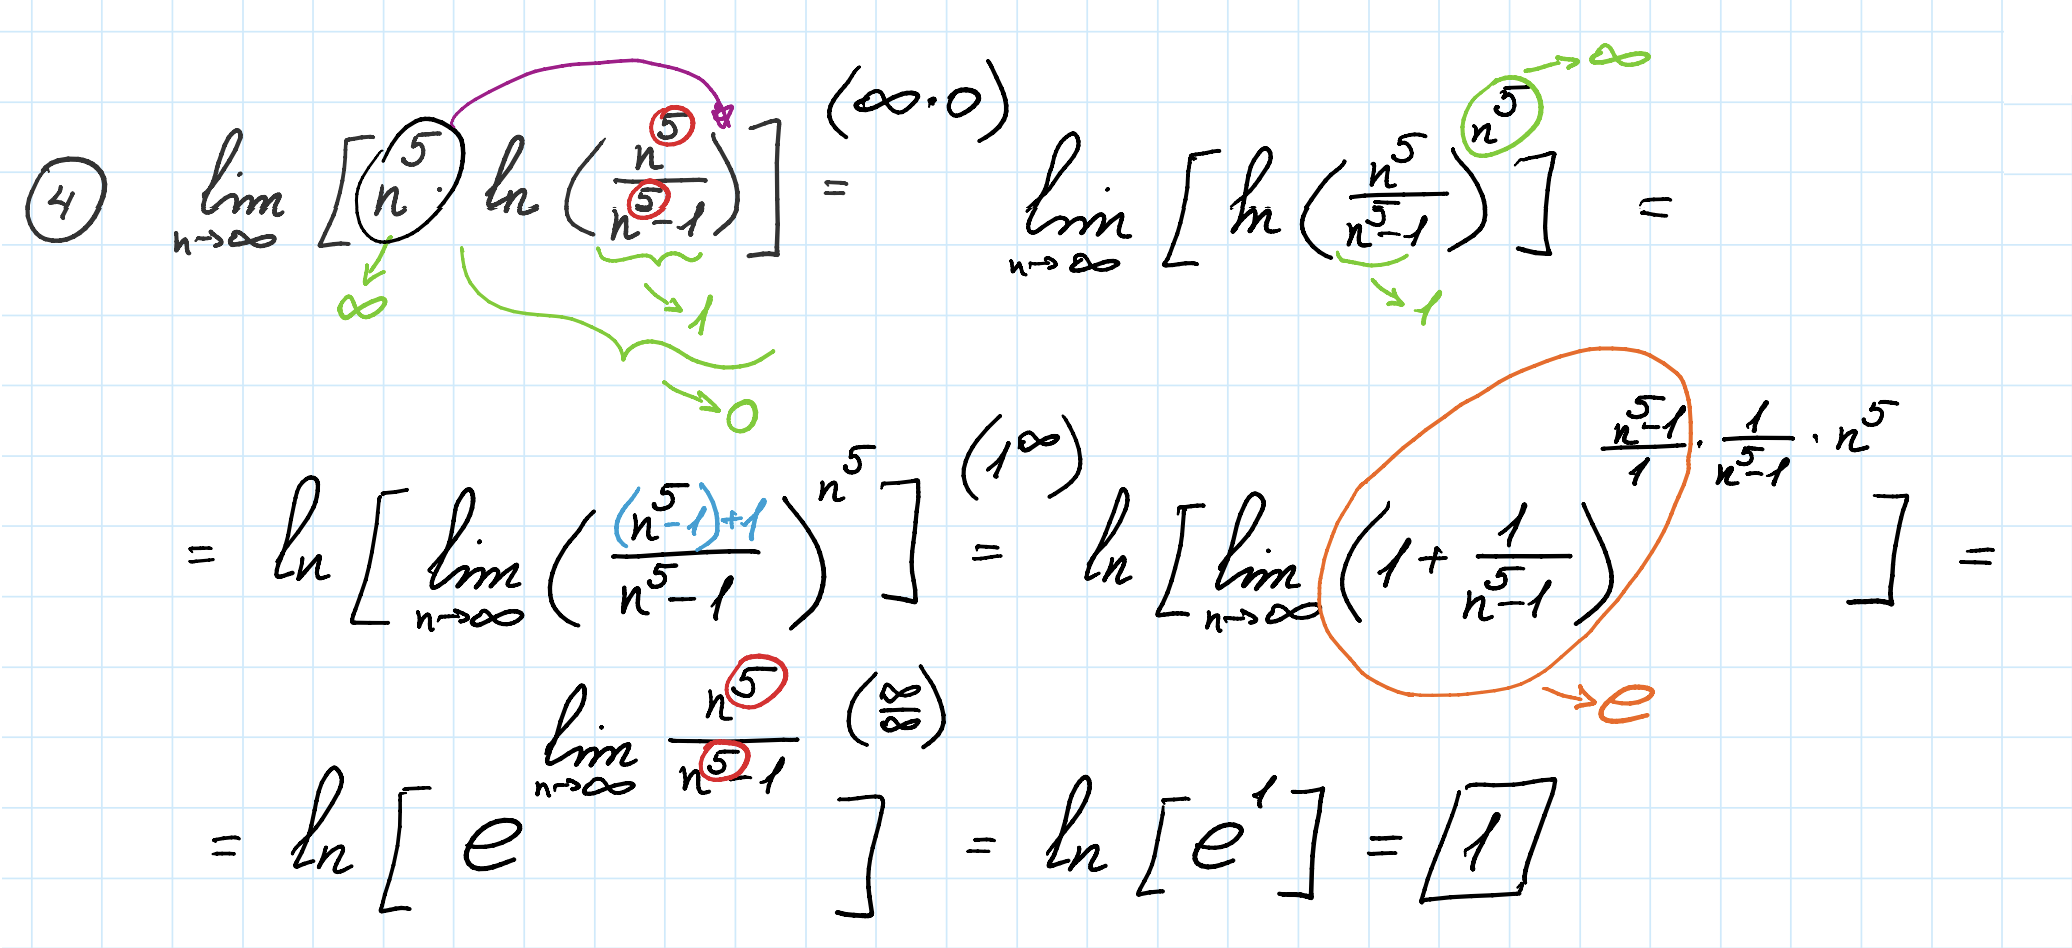 ④ lim n→∞ [ n⁵ · ln ( n⁵ / (n⁵-1) ) ] = (∞·0) lim n→∞ [ ln ( n⁵ / (n⁵-1) )^(n⁵) ] =
→∞
∞ →1 →1
→0
= ln [ lim n→∞ ( ((n⁵-1)+1) / (n⁵-1) )^(n⁵) ] = (1^∞) ln [ lim n→∞ ( 1 + 1/(n⁵-1) )^((n⁵-1)/1 · 1/(n⁵-1) · n⁵) ] =
→e
= ln [ e^(lim n→∞ n⁵ / (n⁵-1)) (∞/∞) ] = ln [ e¹ ] = 1